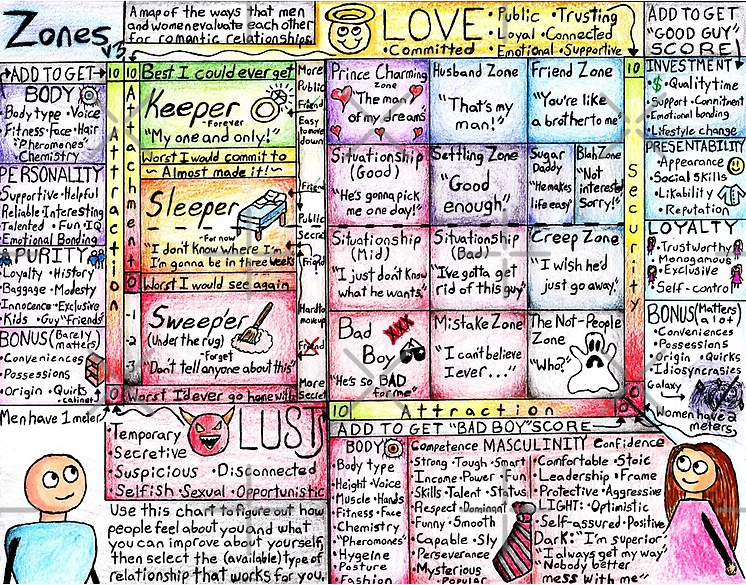 Zones v3
A map of the ways that men
and women evaluate each other
for romantic relationships.
LOVE
• Public • Trusting
• Loyal • Connected
• Committed • Emotional • Supportive
ADD TO GET
"GOOD GUY"
SCORE!
ADD TO GET
BODY
Body type • Voice
Fitness • Face • Hair
"Pheromones"
Chemistry
PERSONALITY
Supportive • Helpful
Reliable Interesting
Talented • Fun • IQ
Emotional Bonding
PURITY
Loyalty • History
Baggage • Modesty
Innocence • Exclusive
Kids • Guy "Friends"
BONUS (Barely
matters)
Conveniences
Possessions
Origin • Quirks
• Cabinet
Men have 1 meter
10
Attraction
0
10
Attachment
0
-1
-2
-3
Best I could ever get
Keeper
- Forever
"My one and only!"
Worst I would commit to
~ Almost made it! ~
Sleeper
- For now
"I don't know where I'm
I'm gonna be in three weeks
Worst I would see again
Sweeper
(Under the rug)
- Forget
"Don't tell anyone about this"
Worst I'd ever go home with
More
Public
Friend
Easy
to move
down
Friend
Public
Secret
Friend
Hard to
move up
Friend
More
Secret
Prince Charming
zone
"The man
of my dreams"
Husband Zone
"That's my
man!"
Friend Zone
"You're like
a brother to me"
Situationship
(Good)
"He's gonna pick
me one day!"
Settling Zone
"Good
enough"
Sugar
Daddy
"He makes
life easy"
Blah Zone
"Not
interested
Sorry!"
Situationship
(Mid)
"I just don't know
what he wants"
Situationship
(Bad)
"I've gotta get
rid of this guy"
Creep Zone
"I wish he'd
just go away"
Bad
Boy
XXX
"He's so BAD
for me"
Mistake Zone
"I can't believe
I ever..."
The Not-People
Zone
"Who?"
10
Security
0
10 Attraction 0
INVESTMENT
$ • Quality time
Support • Commitment
Emotional bonding
Lifestyle change
PRESENTABILITY
• Appearance
• Social Skills
• Likability
• Reputation
LOYALTY
• Trustworthy
Monogamous
• Exclusive
Self-control
BONUS (Matters
a lot)
• Conveniences
Possessions
Origin • Quirks
Idiosyncrasies
Galaxy
Women have 2
meters
LUST
Temporary
• Secretive
• Suspicious • Disconnected
• Selfish • Sexual • Opportunistic
Use this chart to figure out how
people feel about you and what
you can improve about yourself,
then select the (available) type of
relationship that works for you.
ADD TO GET "BAD BOY" SCORE
BODY
• Body type
Height • Voice
Muscle • Hands
• Fitness • Face
Chemistry
"Pheromones"
• Hygeine
Posture
Fashion
Competence MASCULINITY Confidence
Strong • Tough • Smart
Income • Power • Fun
Skills • Talent • Status
Respect • Dominant
Funny • Smooth
Capable • Sly
Perseverance
Mysterious
Popular
• Comfortable • Stoic
Leadership • Frame
Protective • Aggressive
LIGHT: • Optimistic
• Self-assured • Positive
Dark: "I'm superior"
"I always get my way"
"Nobody better
mess with me"